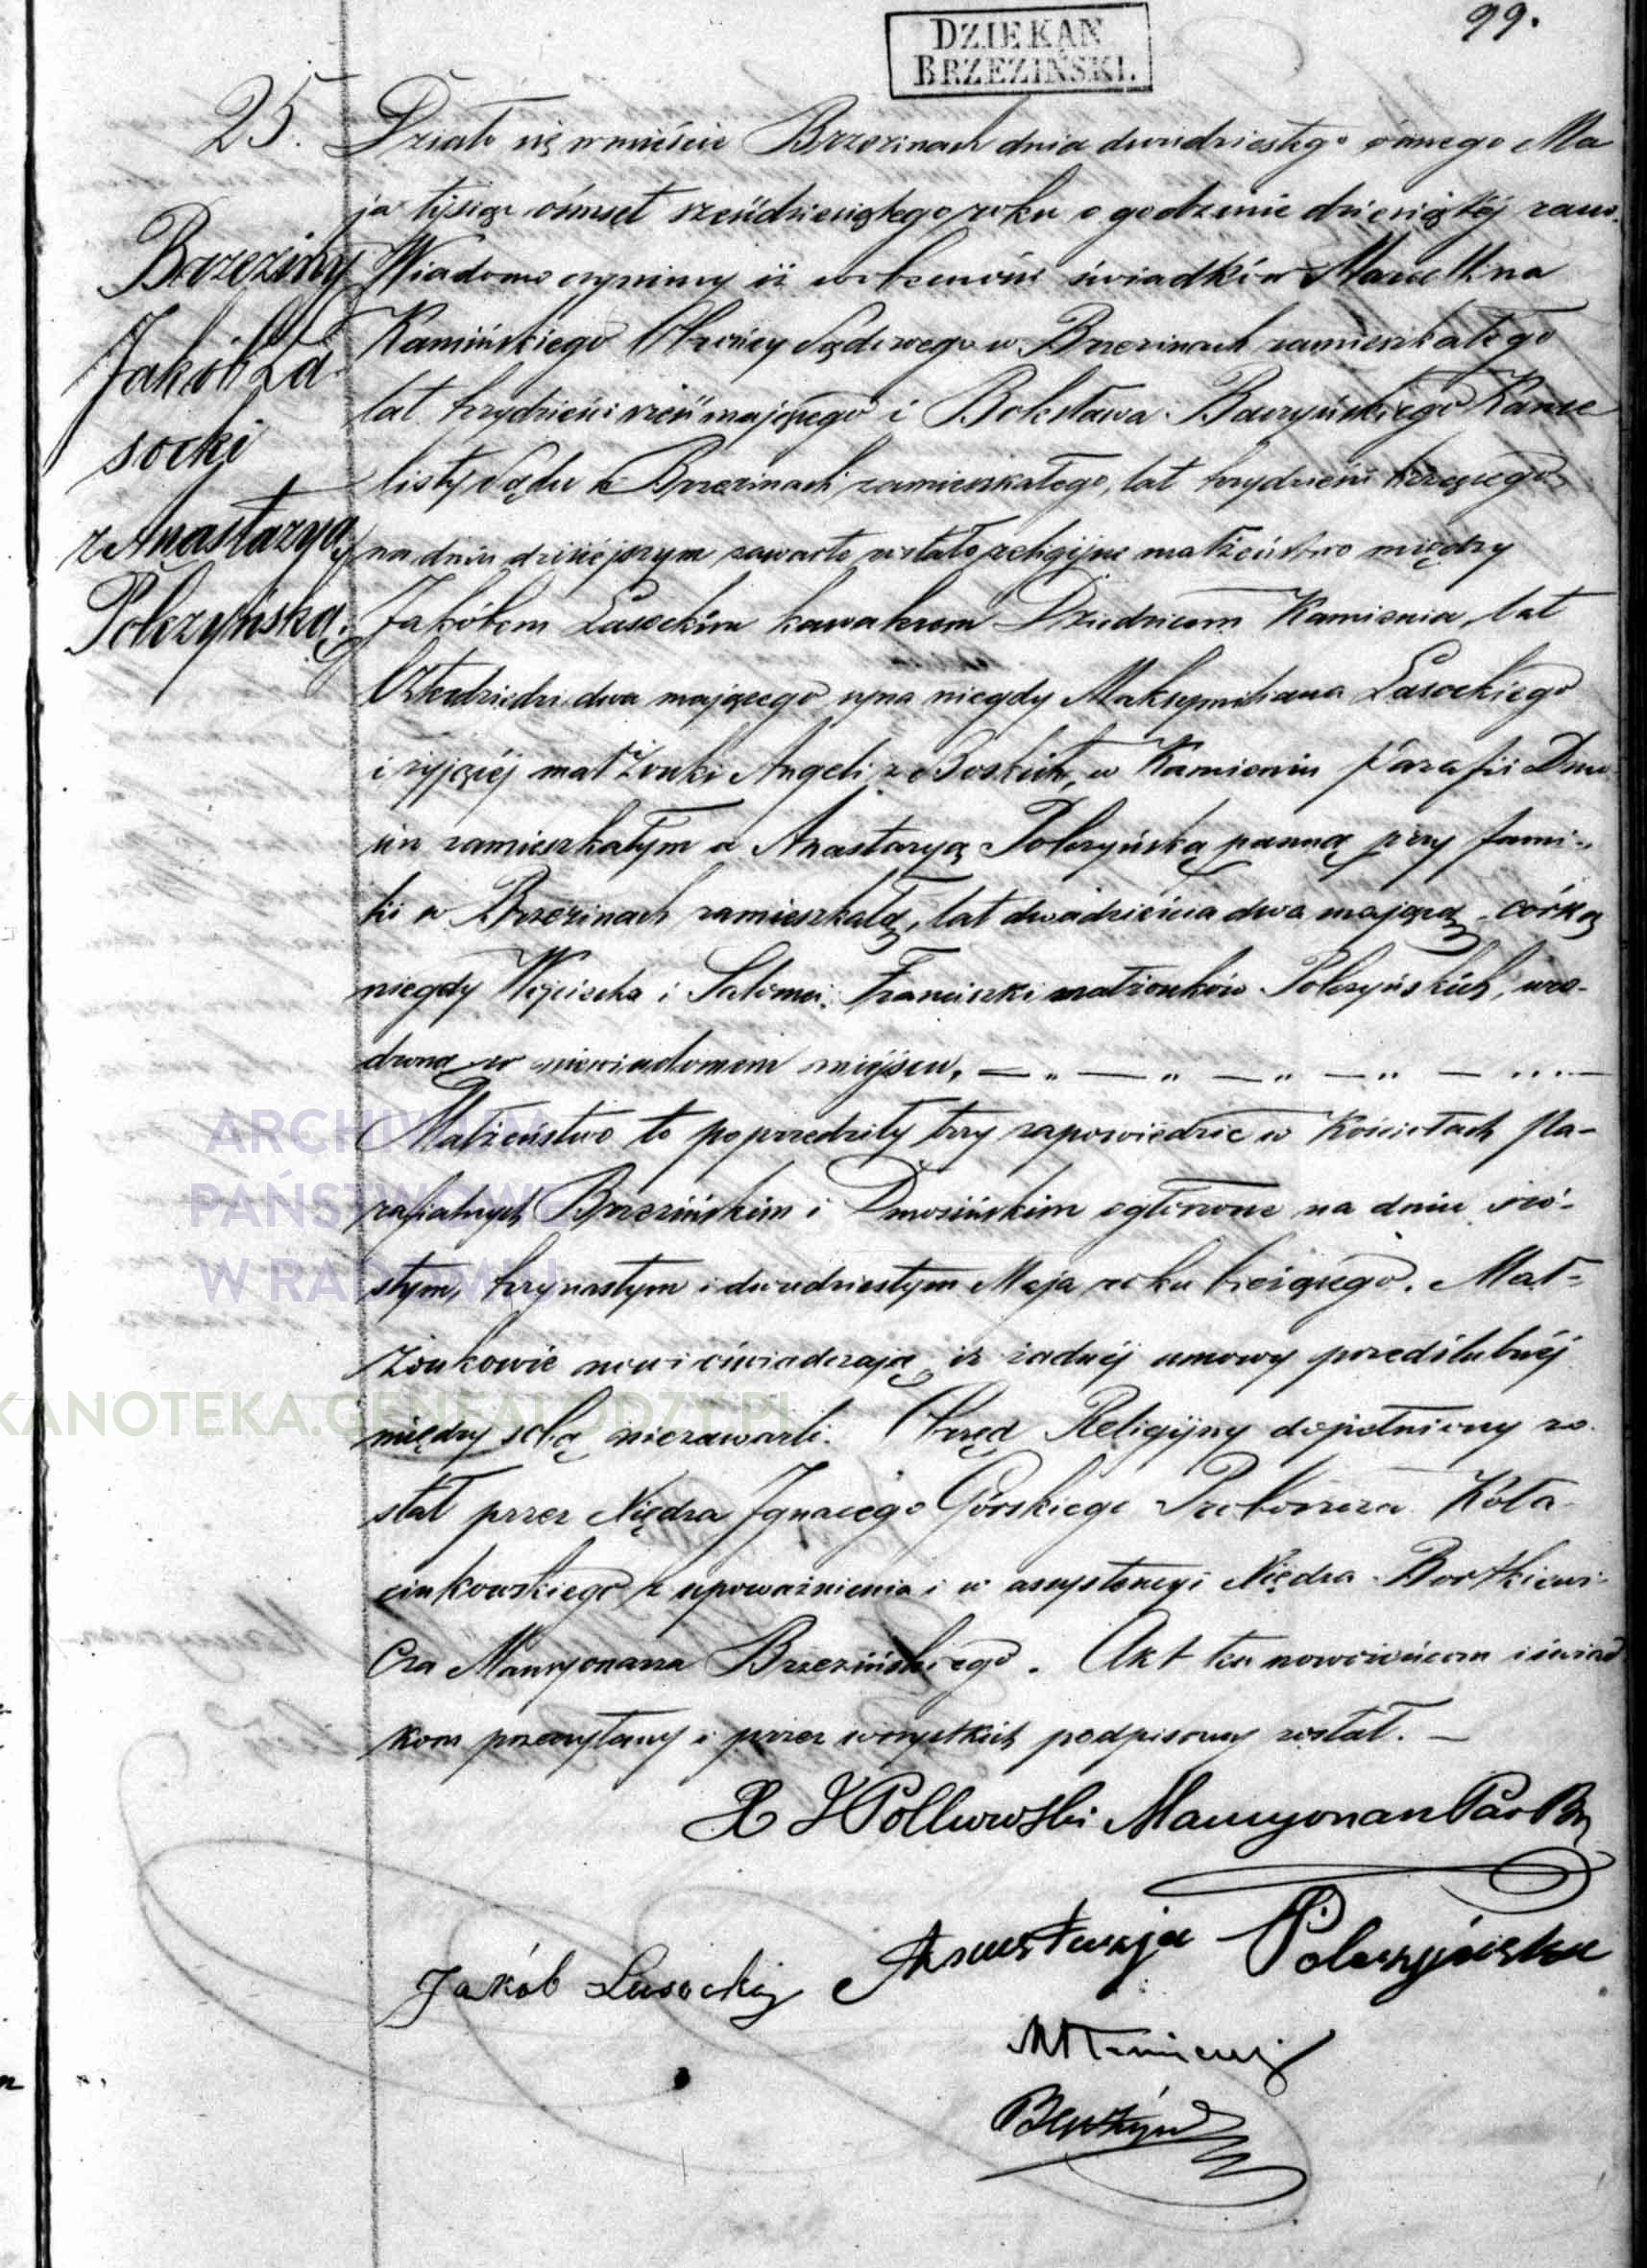 99.
DZIEKAN
BRZEZIŃSKI.
25.
Brzeziny
Jakób La
socki
z Anastazyą
Polczyńską.
Działo się w mieście Brzezinach dnia dwudziestego ósmego Ma
ja tysiąc ośmset sześćdziesiątego roku o godzinie dziesiątéj rano.
Wiadomo czynimy iż w obecności świadków Marcellina
Kamińskiego Obrońcy Sądowego w Brzezinach zamieszkałego
lat trzydzieści sześć mającego i Bolesława Kance
listy Sądu w Brzezinach zamieszkałego, lat trzydzieści liczącego,
na dniu dzisiéjszym zawarte zostało religijne małżeństwo między
Jakóbem Lasockim kawalerem Dziedzicem Kamienia, lat
Czterdzieści dwa mającego syna niegdy Maksymiliana Lasockiego
i żyjącéj małżonki Angeli z w Kamieniu Parafii Dmo
sin zamieszkałym a Anastazyą Polczyńską panną przy fami-
lii w Brzezinach zamieszkałą, lat dwadzieścia dwa mającą, córką
niegdy Wojciecha i Salomei Franciszki małżonków Polczyńskich, uro-
dzoną w niewiadomem miejscu,
Małżeństwo to poprzedziły trzy zapowiedzie w Kościołach Pa-
rafialnych Brzezińskim i Dmosińskim ogłoszone na dniu szó-
stym, trzynastym i dwudziestym Maja roku bieżącego. Mał-
żonkowie nowi oświadczają iż żadnéj umowy przedślubnéj
między sobą niezawarli. Obrzęd Religijny dopełniony zo-
stał przez Xiędza Ignacego Górskiego Proboszcza Koła
cinkowskiego z upoważnienia i w assystencyi Xiędza Bortkiewi-
cza Mansyonarza Brzezińskiego. Akt ten nowożeńcom i świad
kom przeczytany i przez wszystkich podpisany został. —
X Mansyonarz Par Brz
Jakób Lasocki Anastazja Polczyńska
ARCHIWUM
PAŃSTWOWE
W RADOMIU
KANOTEKA.GENEALODZY.PL